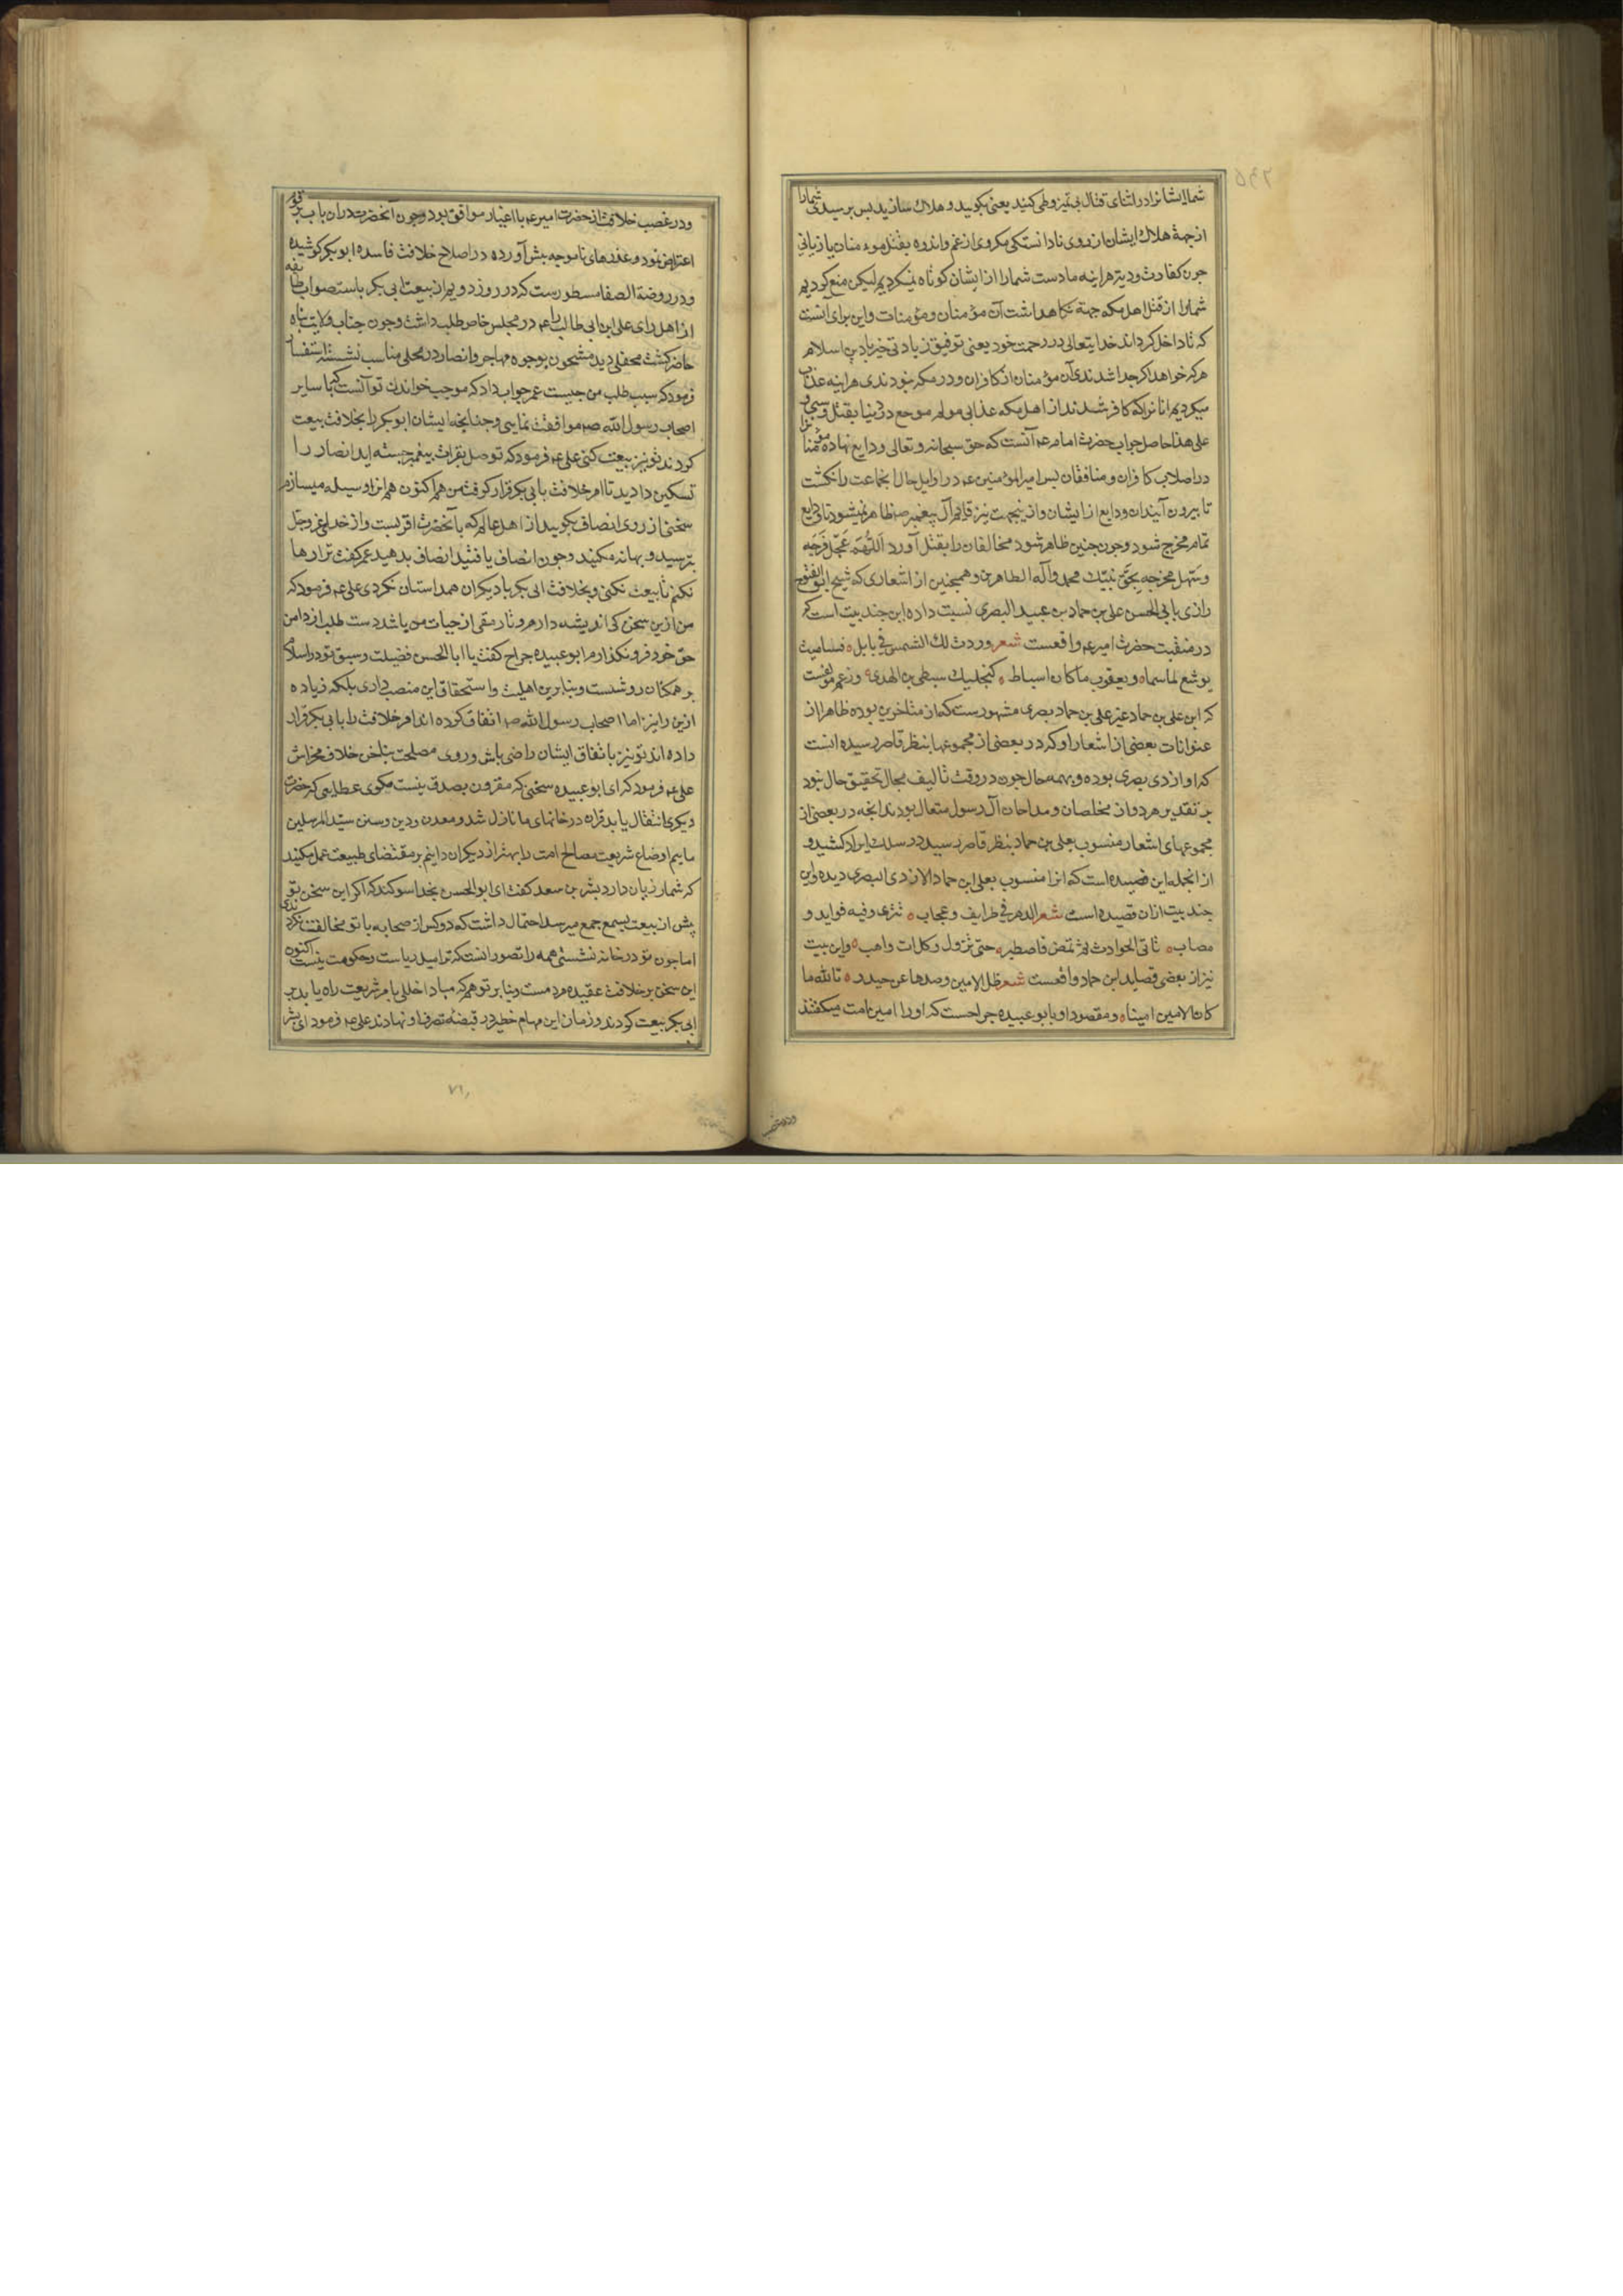 شما ایشانرا در اثنای قتال بی تمیز وطی کنید یعنی بکوبید و هلاك سازید پس برسیدی شمارا
از جهة هلاك ایشان از روی نادانستکی مکروی از غم و اندوه بقتل مومنان یا زیانی
چون کفارت و دیة هراینه ما دست شما را از ایشان کوتاه نمیکردیم لیکن منع کردیم
شمارا از قتل اهل مکه جهة نکاهداشت آن مؤمنان و مؤمنات و این برای آنست
که تا داخل کرداند خدایتعالی در رحمت خود یعنی توفیق زیادتی خیر یا دین اسلام
هرکرا خواهد اکر جدا شدندی آن مؤمنان از کافران و در مکه نبودندی هراینه عذاب
میکردیم انانرا که کافر شدند از اهل مکه عذابی مولم موجع در دنیا بقتل و سبی و
علی هذا حاصل جواب حضرت امام عم آنست که حق سبحانه و تعالی ودایع نهاده مؤمنانرا
در اصلاب کافران و منافقان پس امیرالمؤمنین عم در اوایل حال انجماعت را نکشت
تا بیرون آیند ان ودایع از ایشان و از ینجهت نیز قائم آل پیغمبر صم ظاهر نمیشود تا ودایع
تمام مخرج شود و چون چنین ظاهر شود مخالفان را بقتل آورد اللهم عجل فرجه
و سهل مخرجه بحق نبیك محمد وآله الطاهرین و همچنین از اشعاری که شیخ ابو الفتوح
رازی بابی الحسن علی بن حماد بن عبید البصری نسبت داده این چند بیت است که
در منقبت حضرت امیر عم واقعست شعر وردت لك الشمس فی بابل ه فسامیت
یوشع لما سما ه و یعقوب ما کان اسباط ه کنجلیك سبطی بن الهدی ه و زعم مولفست
که ابن علی بن حماد غیر علی بن حماد بصری مشهورست که از متاخرین بوده ظاهرا از
عنوانات بعضی از اشعار او که در بعضی از مجموعها بنظر قاصر رسیده انست
که او ازدی بصری بوده و بهمه حال چون در وقت تالیف مجال تحقیق حال نبود
بر تقدیر هر دو از مخلصان و مداحان آل رسول متعال بودند انچه در بعضی از
مجموعهای اشعار منسوب بعلی بن حماد بنظر قاصر رسید در سلك ایراد کشید و
از انجمله این قصیده است که انرا منسوب بعلی ابن حماد الازدی البصری دیده و این
چند بیت ازان قصیده است شعر الدهر فی طرایف و عجایب ه تتری و فیه فواید و
مصایب ه تاتی الحوادث ثم تمض فاصطبر ه حتی تزول و کل آت واهب ه و این بیت
نیز از بعضی قصاید ابن حماد واقعست شعر ظل الامین وصدها عن حیدر ه تالله ما
کان الامین امینا ه و مقصود او بابو عبیده جراحست که او را امین امت میکفتند
و در غصب
و در غصب خلافت از حضرت امیر عم با اغیار موافق بود و چون آنحضرت دران باب بر قوم
اعتراض نمود و عذرهای ناموجه پیش آورده در اصلاح خلافت فاسده ابو بکر کوشیده
و در روضة الصفا مسطورست که در روز دویم از بیعت ابی بکر باستصواب طایفه
از اهل رای علی ابن ابی طالب را عم در مجلس خاص طلب داشت و چون جناب ولایت پناه
حاضر کشت محفلی دید مشحون بوجوه مهاجر و انصار در محلی مناسب نشسته استفسار
فرمود که سبب طلب من چیست عمر جواب داد که موجب خواندن تو آنست که با سایر
اصحاب رسول الله صم موافقت نمایی و چنانچه ایشان ابو بکر را بخلافت بیعت
کردند تو نیز بیعت کنی علی عم فرمود که توصل بقرابت پیغمبر جسته اید انصار را
تسکین دادید تا امر خلافت بابی بکر قرار کرفت من هم اکنون همانرا وسیله میسازم
سخنی از روی انصاف بکویید از اهل عالم که بآنحضرت اقربست و از خدای عز وجل
بترسید و بهانه مکنید و چون انصاف یافتید انصاف بدهید عمر کفت ترا رها
نکنم تا بیعت نکنی و بخلافت ابی بکر با دیکران همداستان نکردی علی عم فرمود که
من ازین سخن کی اندیشه دارم و تا رمقی از حیات من باشد دست طلب از دامن
حق خود فرو نکذارم ابو عبیده جراح کفت یا ابا الحسن فضیلت و سبق تو در اسلام
بر همکنان روشنست و بنابرین اهلیت و استحقاق این منصب داری بلکه زیاده
ازین را نیز اما اصحاب رسول الله صم اتفاق کرده اند امر خلافت را بابی بکر قرار
داده اند تو نیز باتفاق ایشان راضی باش و روی مصلحت بناخن خلاف مخراش
علی عم فرمود که ای ابو عبیده سخنی که مقرون بصدق نیست مکوی عطایی که حضرت
دیکری انتقال یابد قران در خانهای ما نازل شد و معدن ودین وسنن سید المرسلین
ماییم اوضاع شریعت مصالح امت را بهتر از دیکران دانیم بر مقتضای طبیعت عمل مکنید
که شمار زیان دارد بشر بن سعد کفت ای ابو الحسن بخدا سوکند که اکر این سخن تو
پیش از بیعت بسمع جمع میرسد احتمال داشت که دو کس از صحابه با تو مخالفت نکردندی
اما چون تو در خانه نشستی همه را تصور انست که ترا میل ریاست و حکومت نیست اکنون
این سخن بر خلافت عقیده مردمست و بنابر توهم که مبادا خللی بامر شریعت راه یابد بر
ابی بکر بیعت کردند و زمان این مهام خطیر در قبضه تصرف او نهادند علی عم فرمود ای بشر